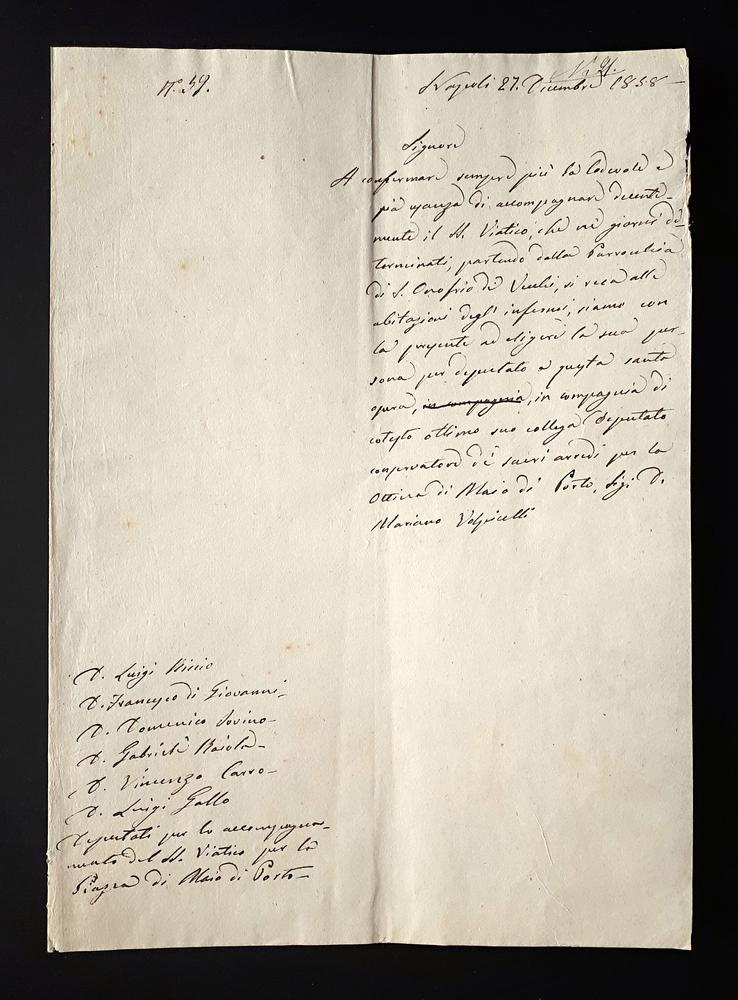 N.° 59.
N. 21.
Napoli 27. Dicembre 1858
Signore
A confermare sempre più la lodevole e
pia usanza di accompagnare decente-
mente il SS. Viatico, che ne' giorni de-
terminati, partendo dalla Parrocchia
di S. Onofrio de' Vecchi, si reca alle
abitazioni degl' infermi, siamo con
la presente ad eligere la sua per-
sona per deputato a questa santa
opera, in compagnia, in compagnia di
cotesto ottimo suo collega Deputato
conservatore de' sacri arredi per la
Ottina di Maio di Porto, Sig. D.
Mariano Volpicelli
D. Luigi Riccio
D. Francesco di Giovanni
D. Domenico Iovino
D. Gabriele Raiola
D. Vincenzo Carro
D. Luigi Gallo
Deputati per lo accompagna-
mento del SS. Viatico per la
Piazza di Maio di Porto